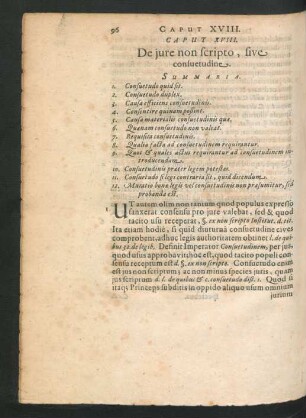 96 CAPUT XVIII.
CAPUT XVIII.
De jure non scripto, sive
consuetudine.
SUMMARIA.
1. Consuetudo quid sit.
2. Consuetudo duplex.
3. Causa efficiens consuetudinis.
4. Consentire quinam possint.
5. Causa materialis consuetudinis quæ.
6. Quænam consuetudo non valeat.
7. Requisita consuetudinis.
8. Qualia facta ad consuetudinem requirantur.
9. Quot & quales actus requirantur ad consuetudinem in-
troducendam.
10. Consuetudinis præter legem potestas.
11. Consuetudo si legi contraria sit, quid dicendum.
12. Mutatio bonæ legis vel consuetudinis non præsumitur, sed
probanda est.
UT autem olim non tantum quod populus expresso
sanxerat consensu pro jure valebat, sed & quod
tacito usu receperat, §. ex non scripto Institut. d. tit.
Ita etiam hodie, si quid diuturna consuetudine cives
comprobent, alterius legis authoritatem obtinet l. de qui-
bus 32. de legib. Definit Imperator Consuetudinem, per jus
quod usus approbavit hoc est, quod taciti populi con-
sensu receptum est d. §. ex non scripto. Consuetudo enim
est jus non scriptum; ac non minus species juris, quam
jus scriptum d. l. de quibus & c. consuetudo dist. 1. Quod si
itaq; Princeps subditis in oppido aliquo usum omnium